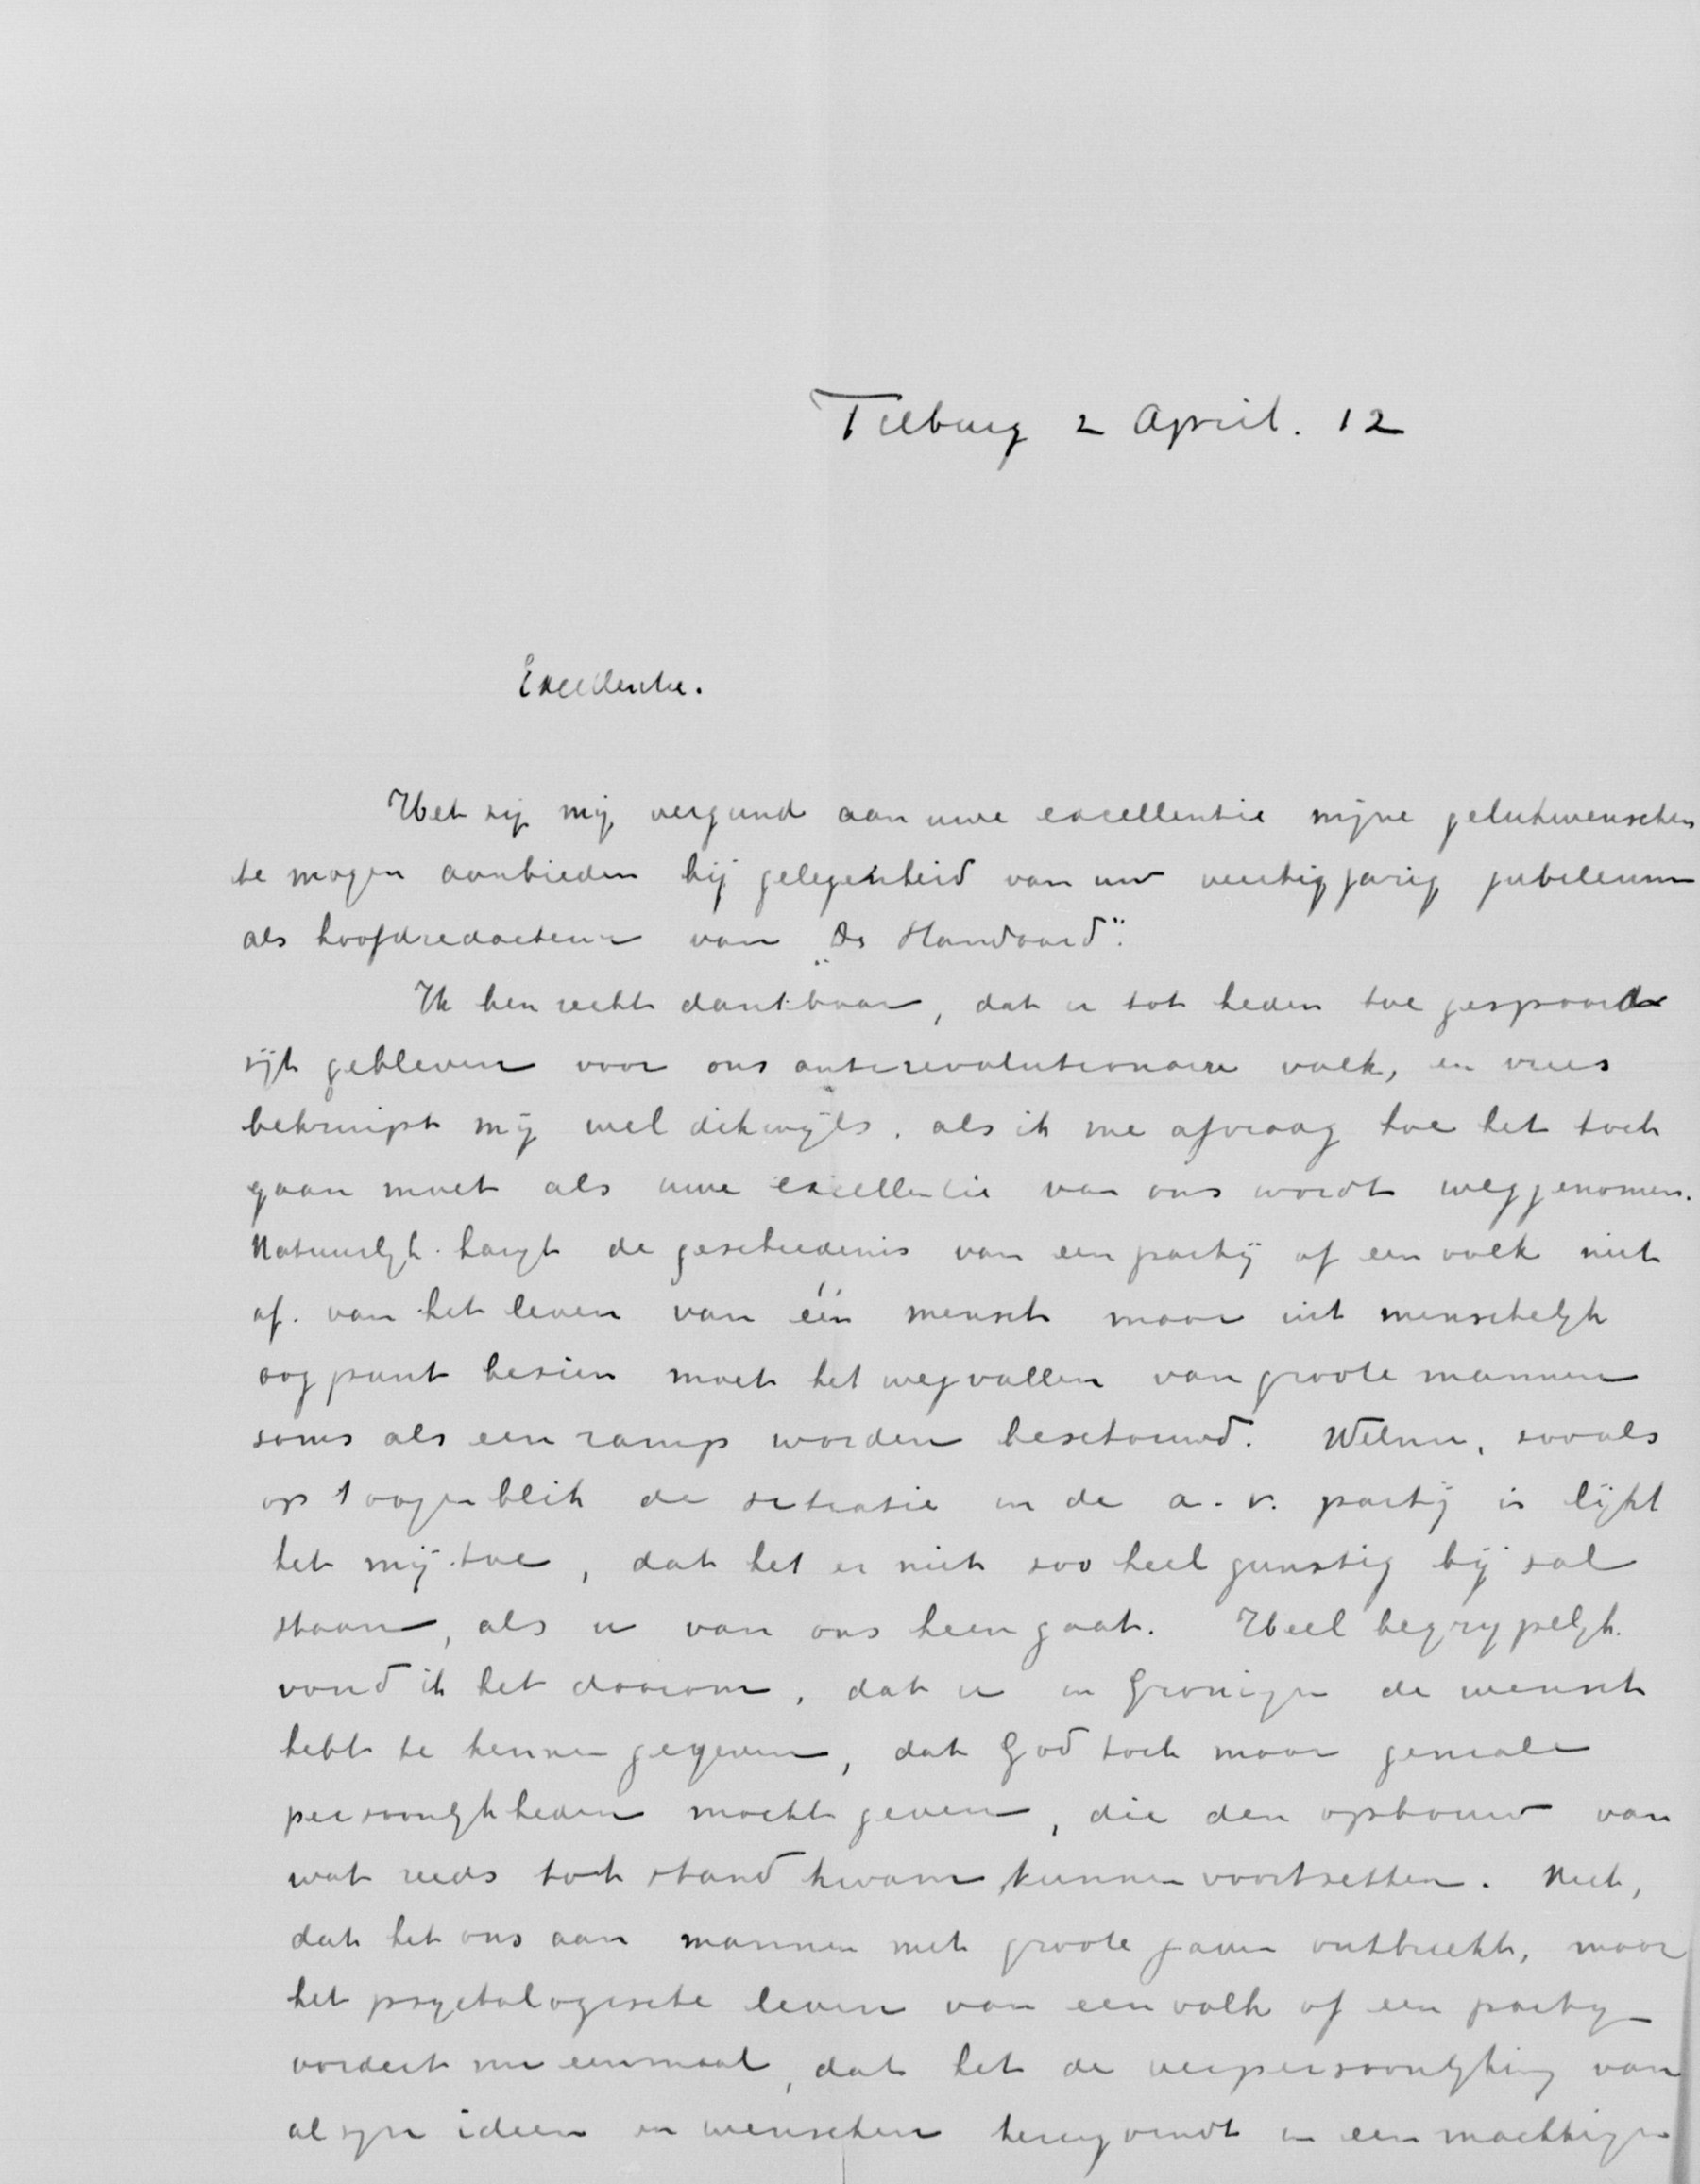 Tilburg 2 April. 12
Excellentie.
Het zij mij vergund aan uwe excellentie mijne gelukwenschen
te mogen aanbieden bij gelegenheid van uw veertigjarig jubileum
als hoofdredacteur van „De Standaard".
Ik ben recht dankbaar, dat u tot heden toe gespaard
zijt gebleven voor ons antirevolutionaire volk, en vrees
bekruipt mij wel dikwijls, als ik me afvraag hoe het toch
gaan moet als uwe excellentie van ons wordt weggenomen.
Natuurlijk hangt de geschiedenis van een partij of een volk niet
af van het leven van één mensch maar uit menschelijk
oogpunt bezien moet het wegvallen van groote mannen
soms als een ramp worden beschouwd. Welnu, zooals
op 't oogenblik de situatie in de a.r. partij is lijkt
het mij toe, dat het er niet zoo heel gunstig bij zal
staan, als u van ons heengaat. Heel begrijpelijk
vond ik het daarom, dat u in Groningen de wensch
hebt te kennen gegeven, dat God toch maar geniale
persoonlijkheden mocht geven, die den opbouw van
wat reeds tot stand kwam, kunnen voortzetten. Niet,
dat het ons aan mannen met groote gaven ontbreekt, maar
het psychologische leven van een volk of een partij
vordert nu eenmaal, dat het de verpersoonlijking van
al zijn ideeen en wenschen terugvindt in een machtige